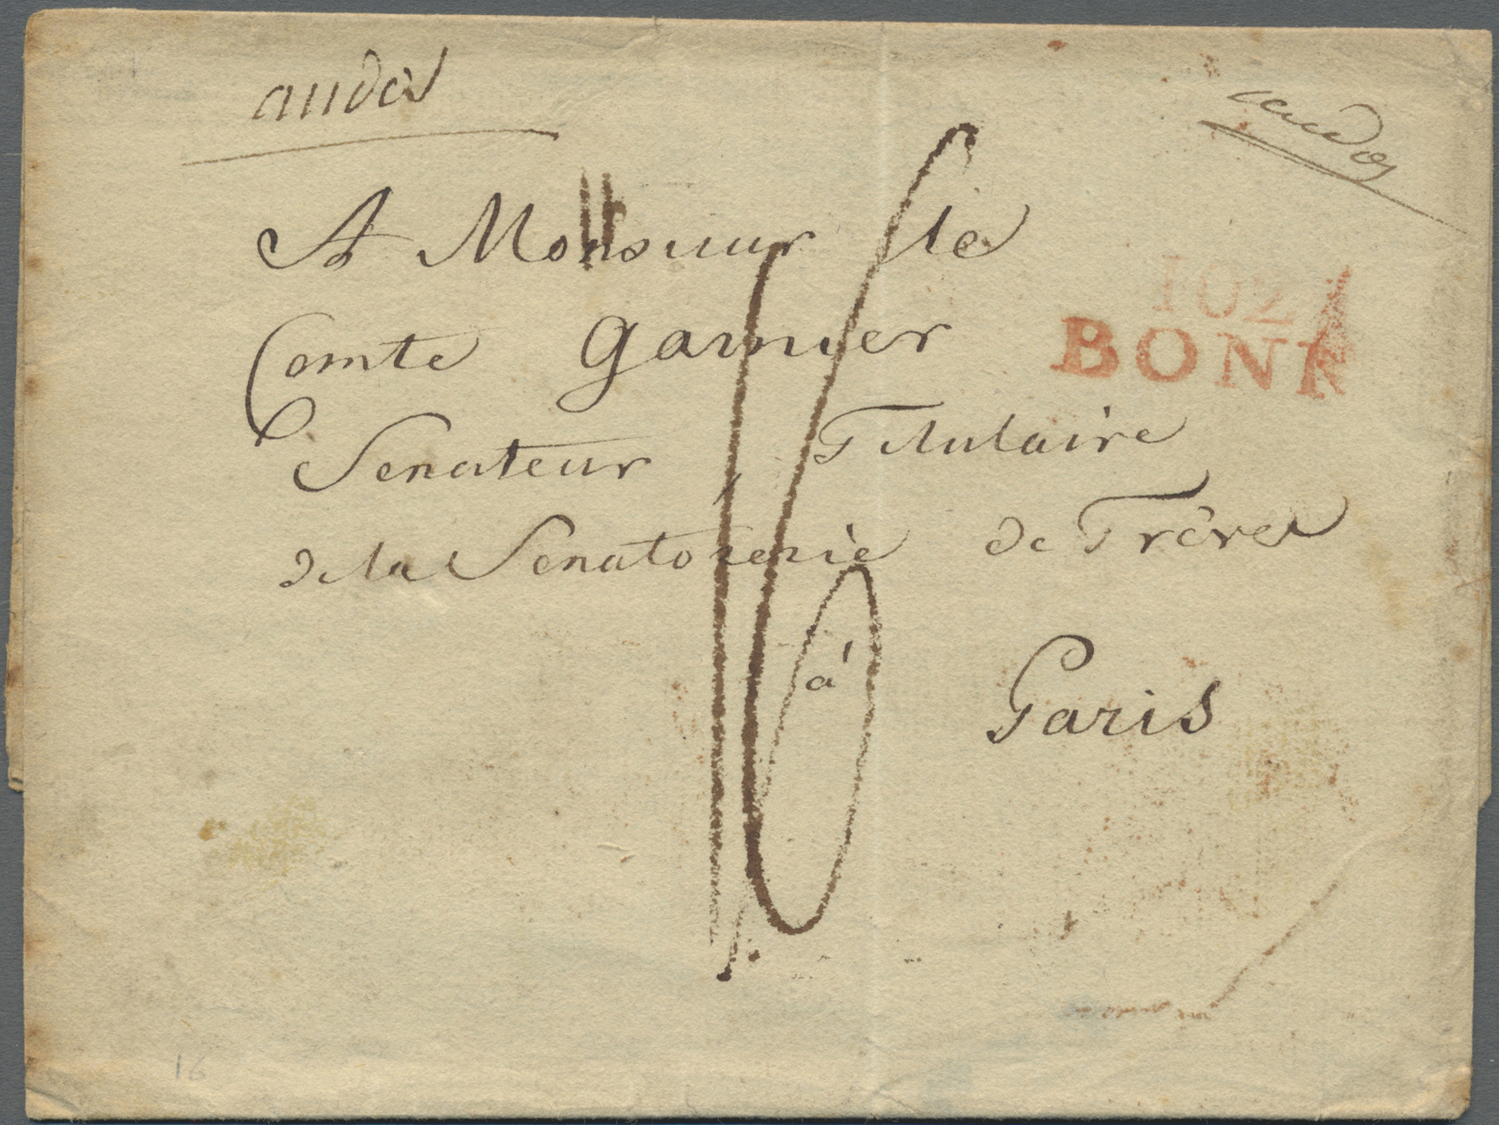 A Monsieur le
102
BONN
Comte Garnier
Senateur, Titulaire
de la Senatorerie de Trêves
à Paris
16
16